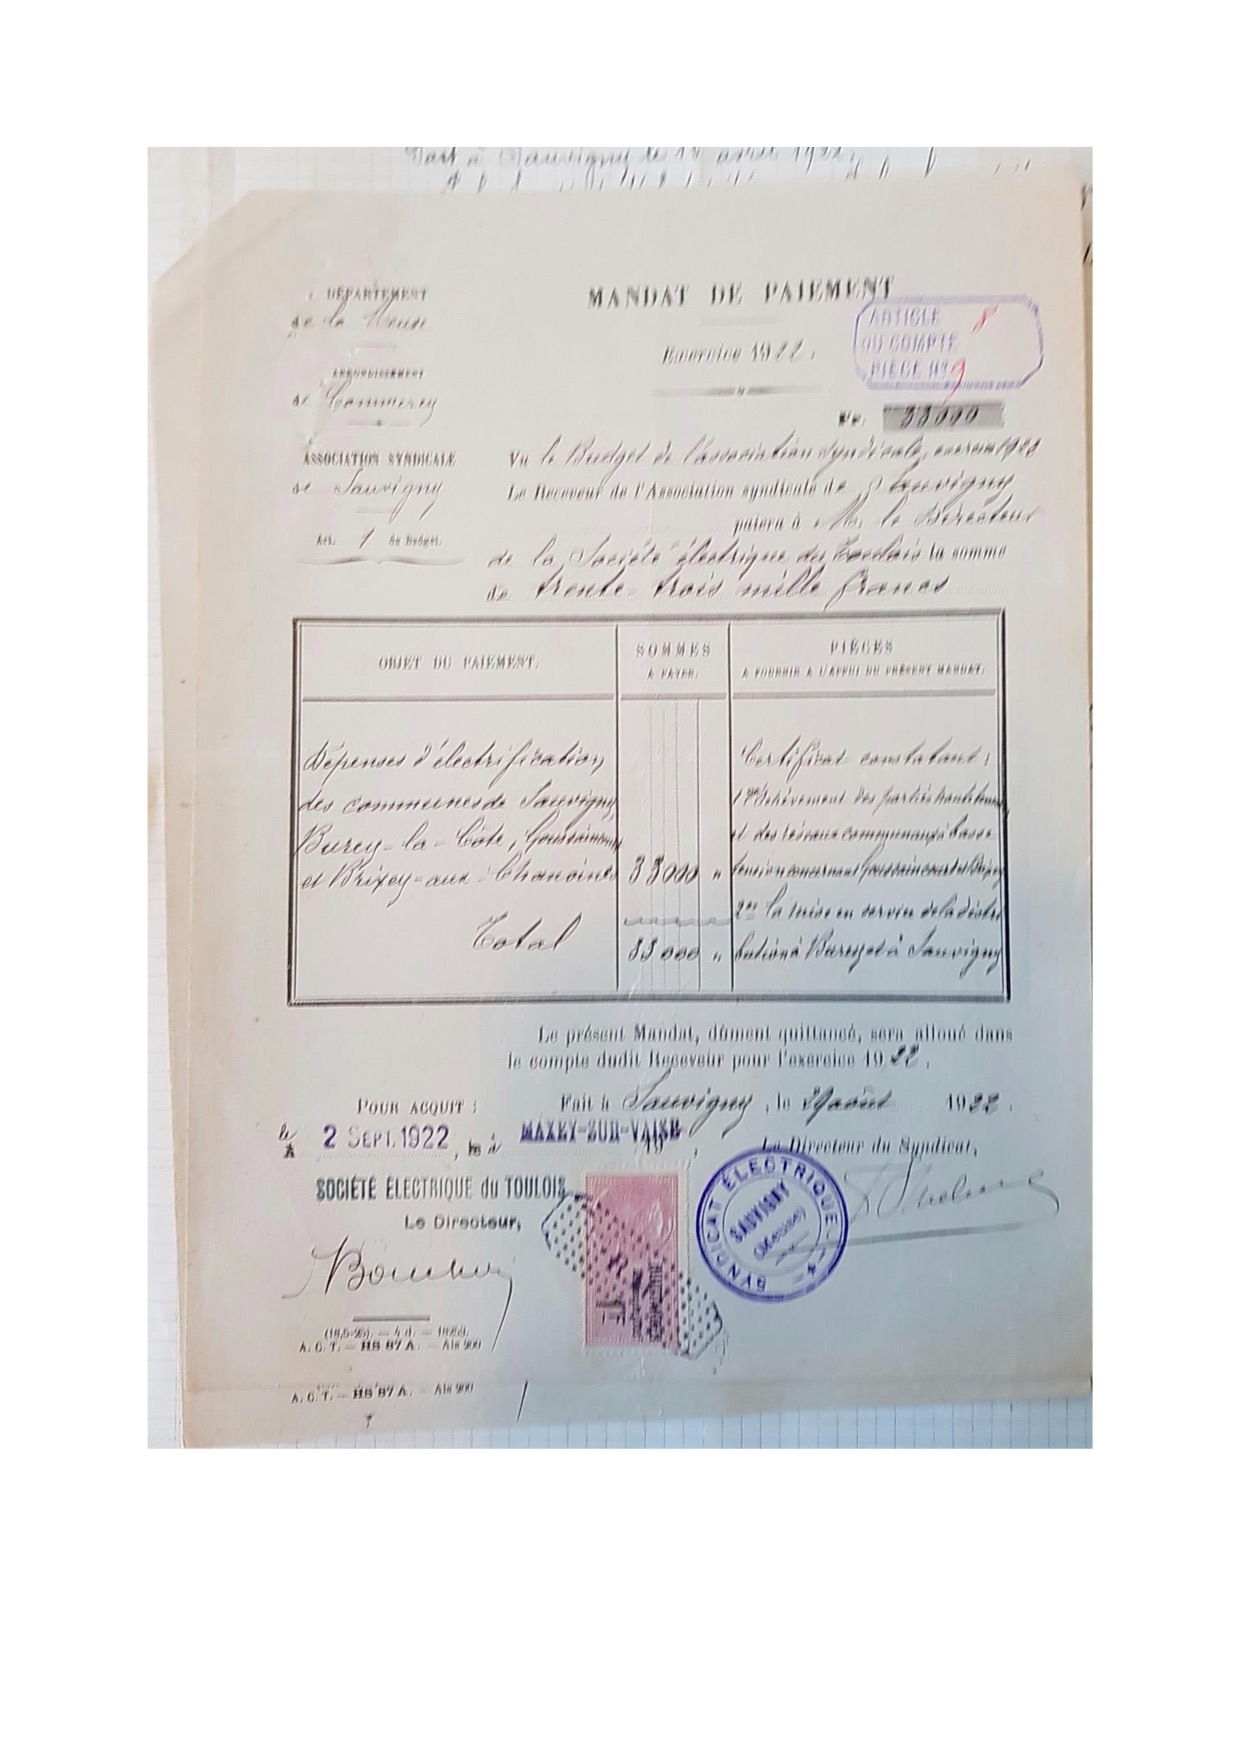 Fait à Sauvigny le 18 avril 1922.
DÉPARTEMENT
de la Meuse
ARRONDISSEMENT
de Commercy
ASSOCIATION SYNDICALE
de Sauvigny
Art. 1 du Budget.
MANDAT DE PAIEMENT
Exercice 1922.
ARTICLE 8
DU COMPTE
PIÈCE No 9
Fr. 33000
Vu le Budget de l'association syndicale, exercice 1922
Le Receveur de l'Association syndicale de Sauvigny
paiera à M. le Directeur
de la Société électrique du Toulois la somme
de trente-trois mille francs
OBJET DU PAIEMENT.
SOMMES
A PAYER.
PIÈCES
A FOURNIR A L'APPUI DU PRÉSENT MANDAT.
Dépenses d'électrification
des communes de Sauvigny,
Burey-la-Côte, Goussaincourt
et Brixey-aux-Chanoines 33000 "
Total 33000 "
Certificat constatant :
1° l'achèvement des parties haute tension
et des réseaux communaux à basse
tension concernant Goussaincourt et Brixey
2° la mise en service de la distri
bution à Burey et à Sauvigny
Le présent Mandat, dûment quittancé, sera alloué dans
le compte dudit Receveur pour l'exercice 1922.
Fait à Sauvigny, le 29 août 1922.
POUR ACQUIT :
le 2 SEPT. 1922, à MAXEY-SUR-VAISE 19 ,
Le Directeur du Syndicat,
SOCIÉTÉ ÉLECTRIQUE du TOULOIS
Le Directeur,
SYNDICAT ÉLECTRIQUE
SAUVIGNY
(Meuse)
A. C. T. — HS 87 A. — Als 200
A. C. T. — HS 87 A. — Als 200